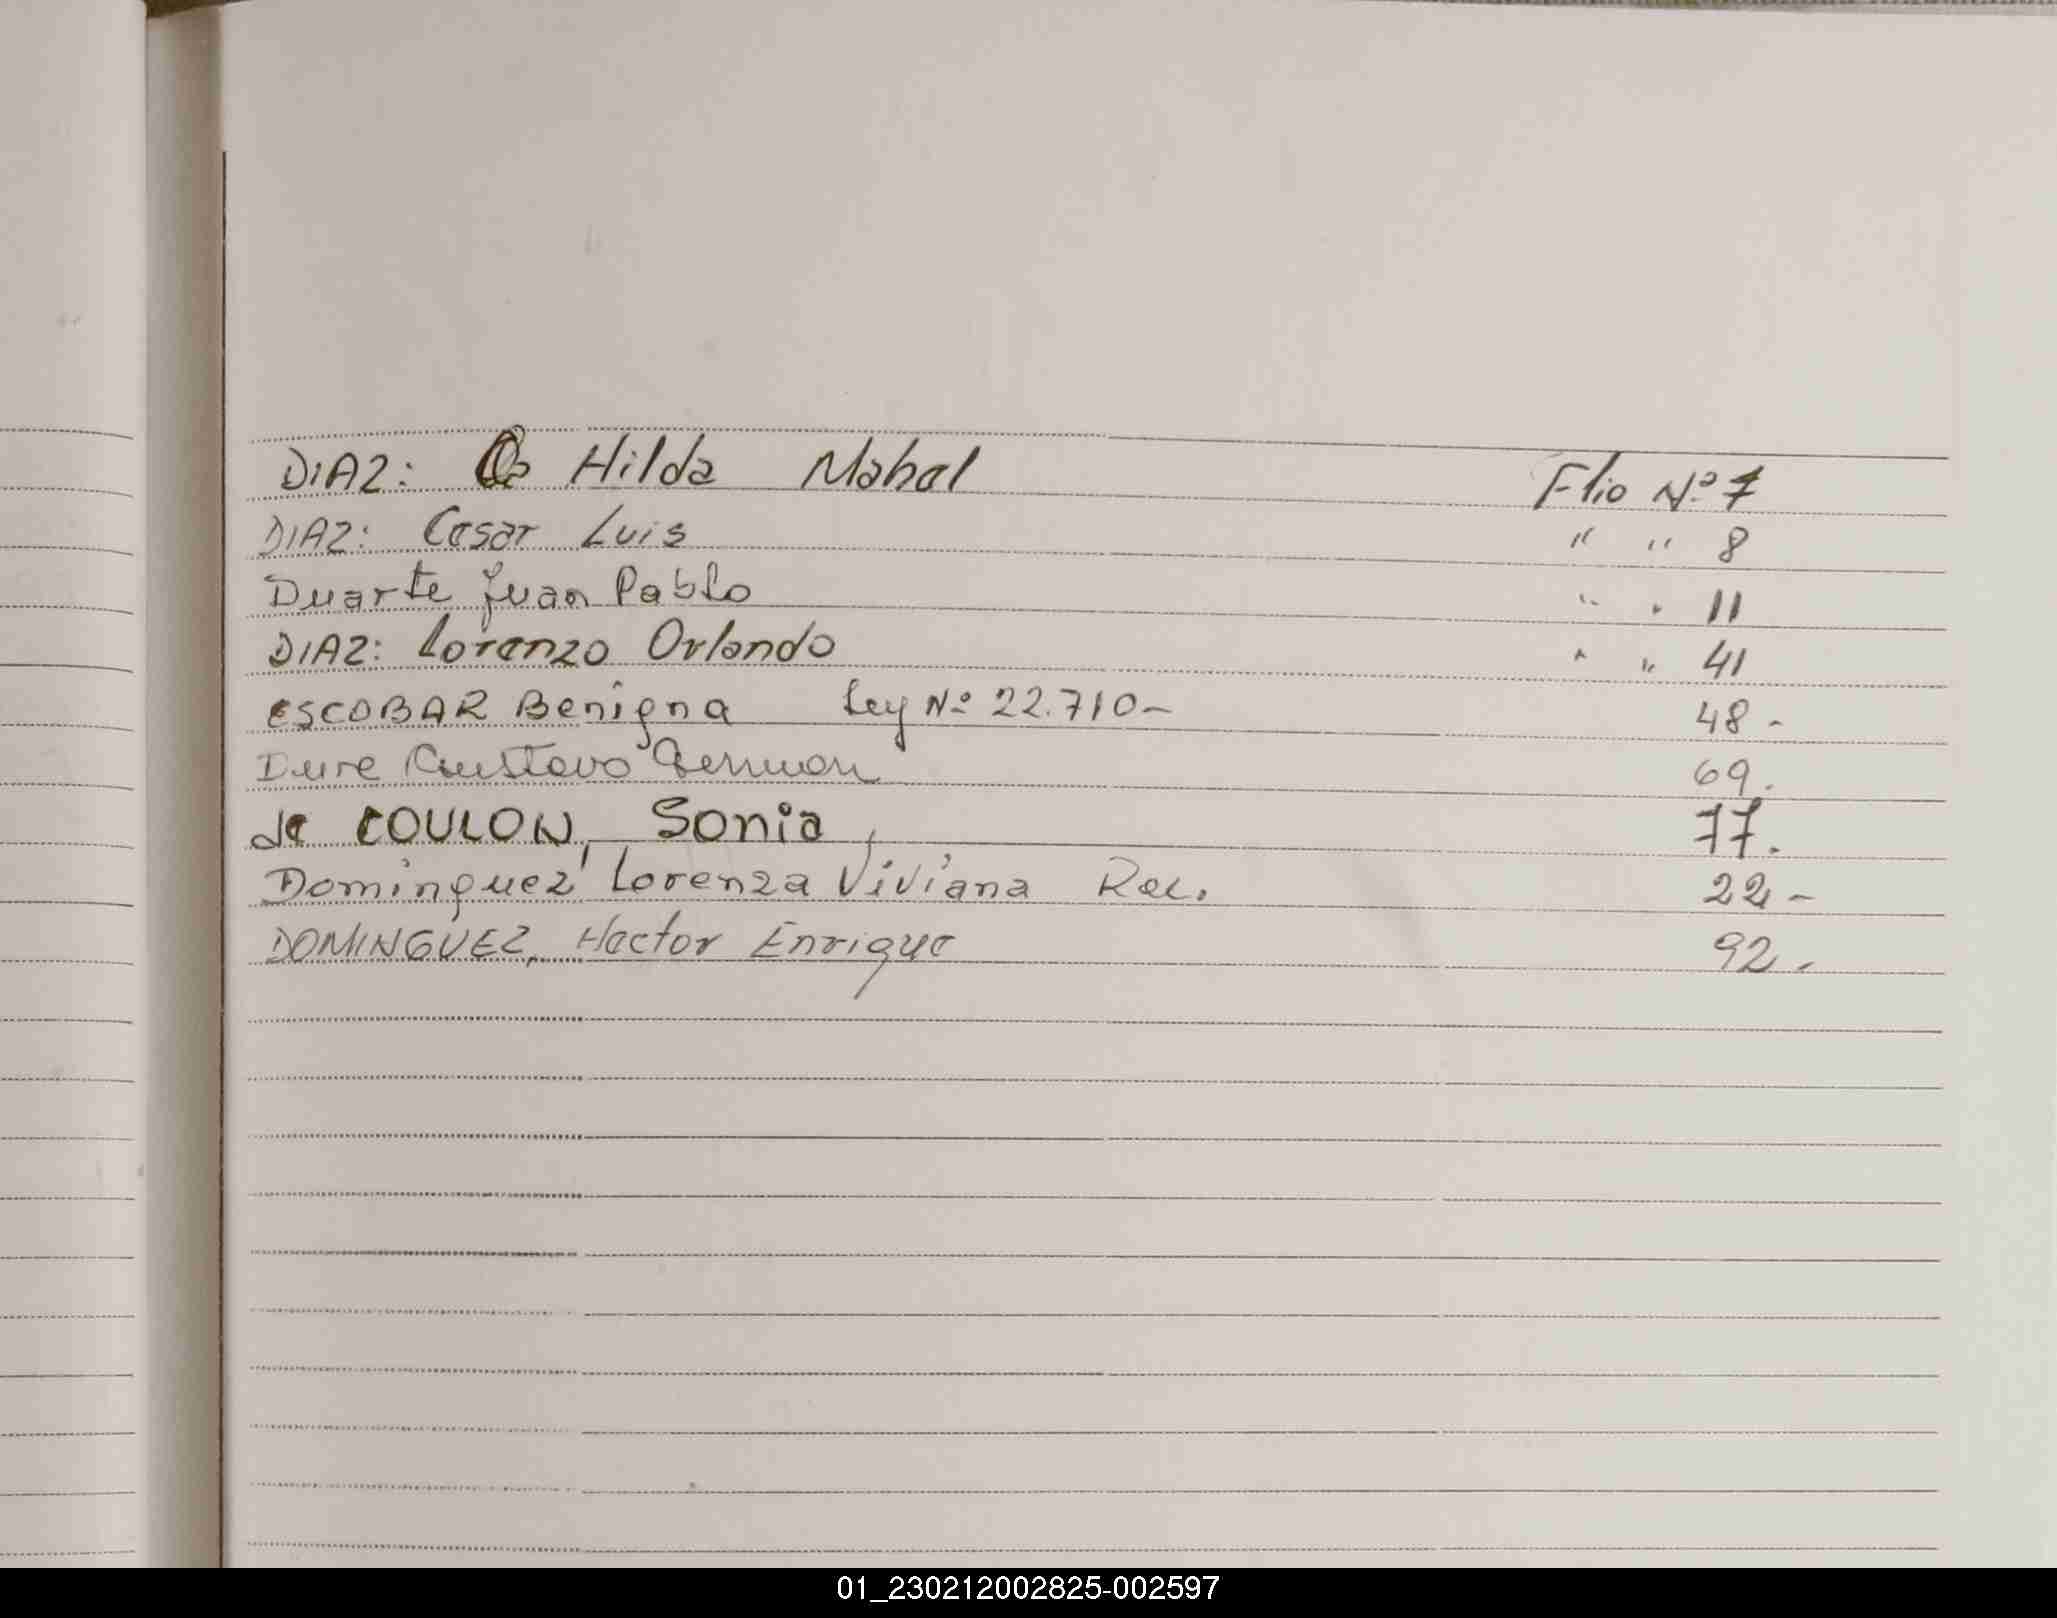 DIAZ: Hilda Mabel Flio Nº 7
DIAZ: Cesar Luis " " 8
Duarte Juan Pablo " " 11
DIAZ: Lorenzo Orlando " " 41
ESCOBAR Benigna Ley Nº 22.710- 48-
Dure Gustavo German 69.
de COULON, Sonia 77.
Dominguez Lorenza Viviana Rec. 22-
DOMINGUEZ, Hector Enrique 92.
01_230212002825-002597